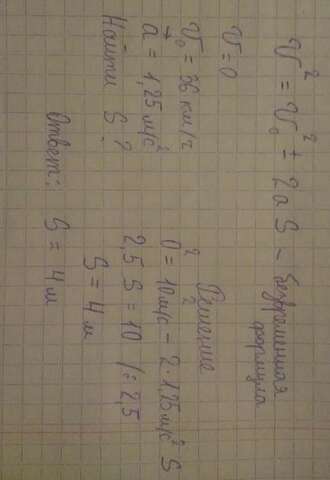 V² = V₀² ± 2aS - Безвременная формула
V = 0
V₀ = 36 км/ч
a = 1,25 м/с²
Найти S?
Решение
0² = 10² м/с - 2·1,25 м/с² S
2,5 S = 10 /: 2,5
S = 4 м
Ответ: S = 4 м